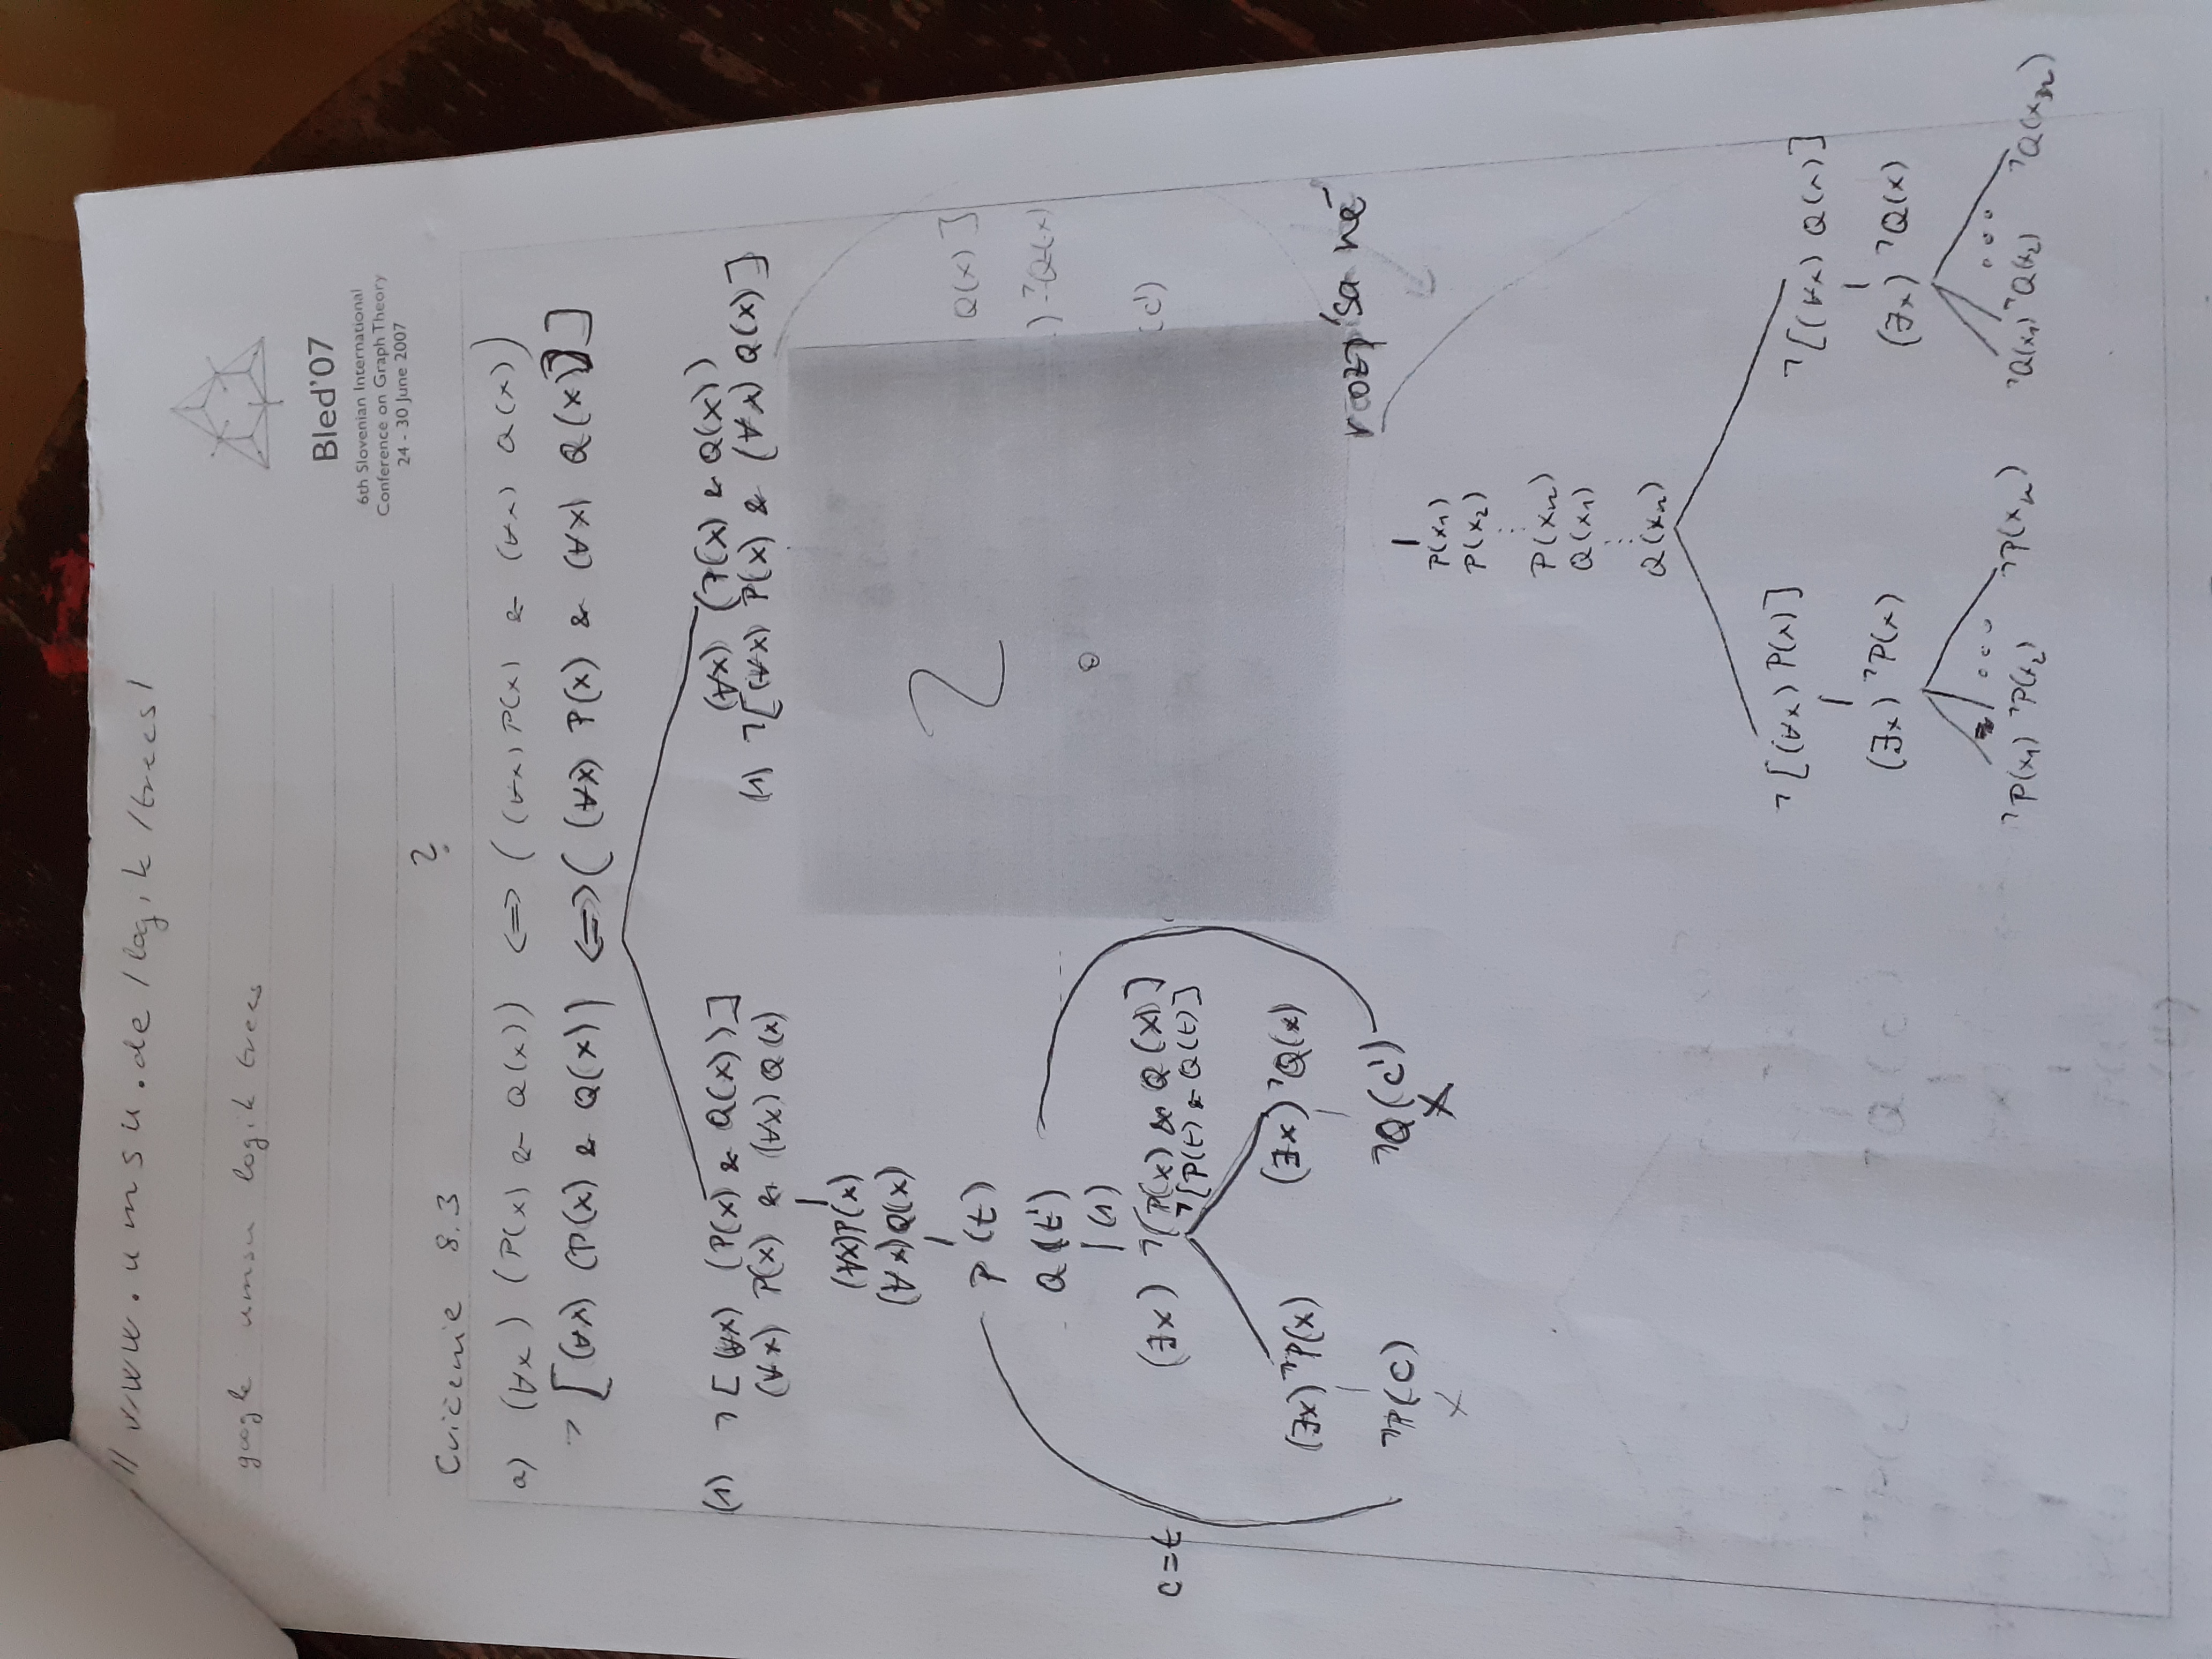 // www.umsu.de/logik/trees/
google umsu logik trees
Bled'07
6th Slovenian International
Conference on Graph Theory
24 - 30 June 2007
Cvičenie 8.3 ?
a) (∀x) (P(x) & Q(x)) <=> ((∀x) P(x) & (∀x) Q(x))
¬[(∀x) (P(x) & Q(x)) <=> ((∀x) P(x) & (∀x) Q(x))]
(1) ¬[(∀x) (P(x) & Q(x))]
(∀x) P(x) & (∀x) Q(x)
(∀x)P(x)
(∀x)Q(x)
P(t)
Q(t')
(1)
(∃x) ¬(P(x) & Q(x))]
¬[P(t) & Q(t)]
(∃x) ¬P(x)
(∃x) ¬Q(x)
¬P(c)
¬Q(c')
x
x
c=t
(∀x) (P(x) & Q(x))
(1) ¬[(∀x) P(x) & (∀x) Q(x)]
?
Q(x)]
¬Q(x)
(c')
rozpísané
P(x₁)
P(x₂)
⋮
P(xₙ)
Q(x₁)
⋮
Q(xₙ)
¬[(∀x) P(x)]
¬[(∀x) Q(x)]
(∃x) ¬P(x)
(∃x) ¬Q(x)
¬P(x₁) ¬P(x₂) ... ¬P(xₙ)
¬Q(x₁) ¬Q(x₂) ... ¬Q(xₙ)